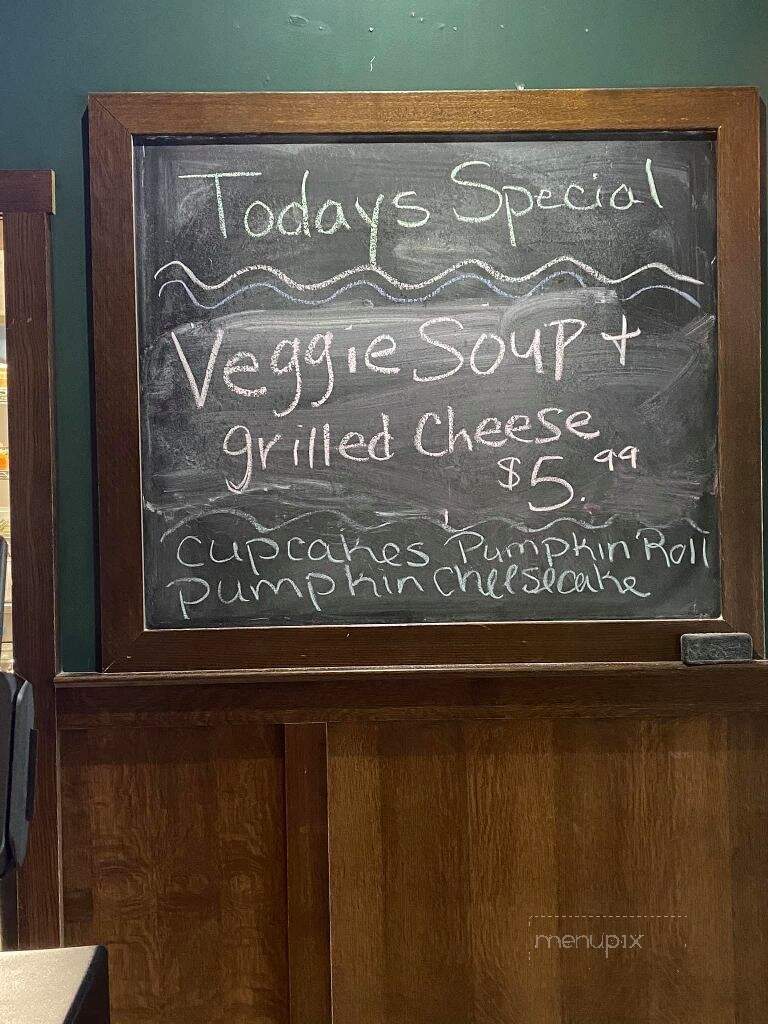 Todays Special
Veggie Soup +
grilled Cheese
$5.99
cupcakes Pumpkin Roll
pumpkin cheesecake
menupix